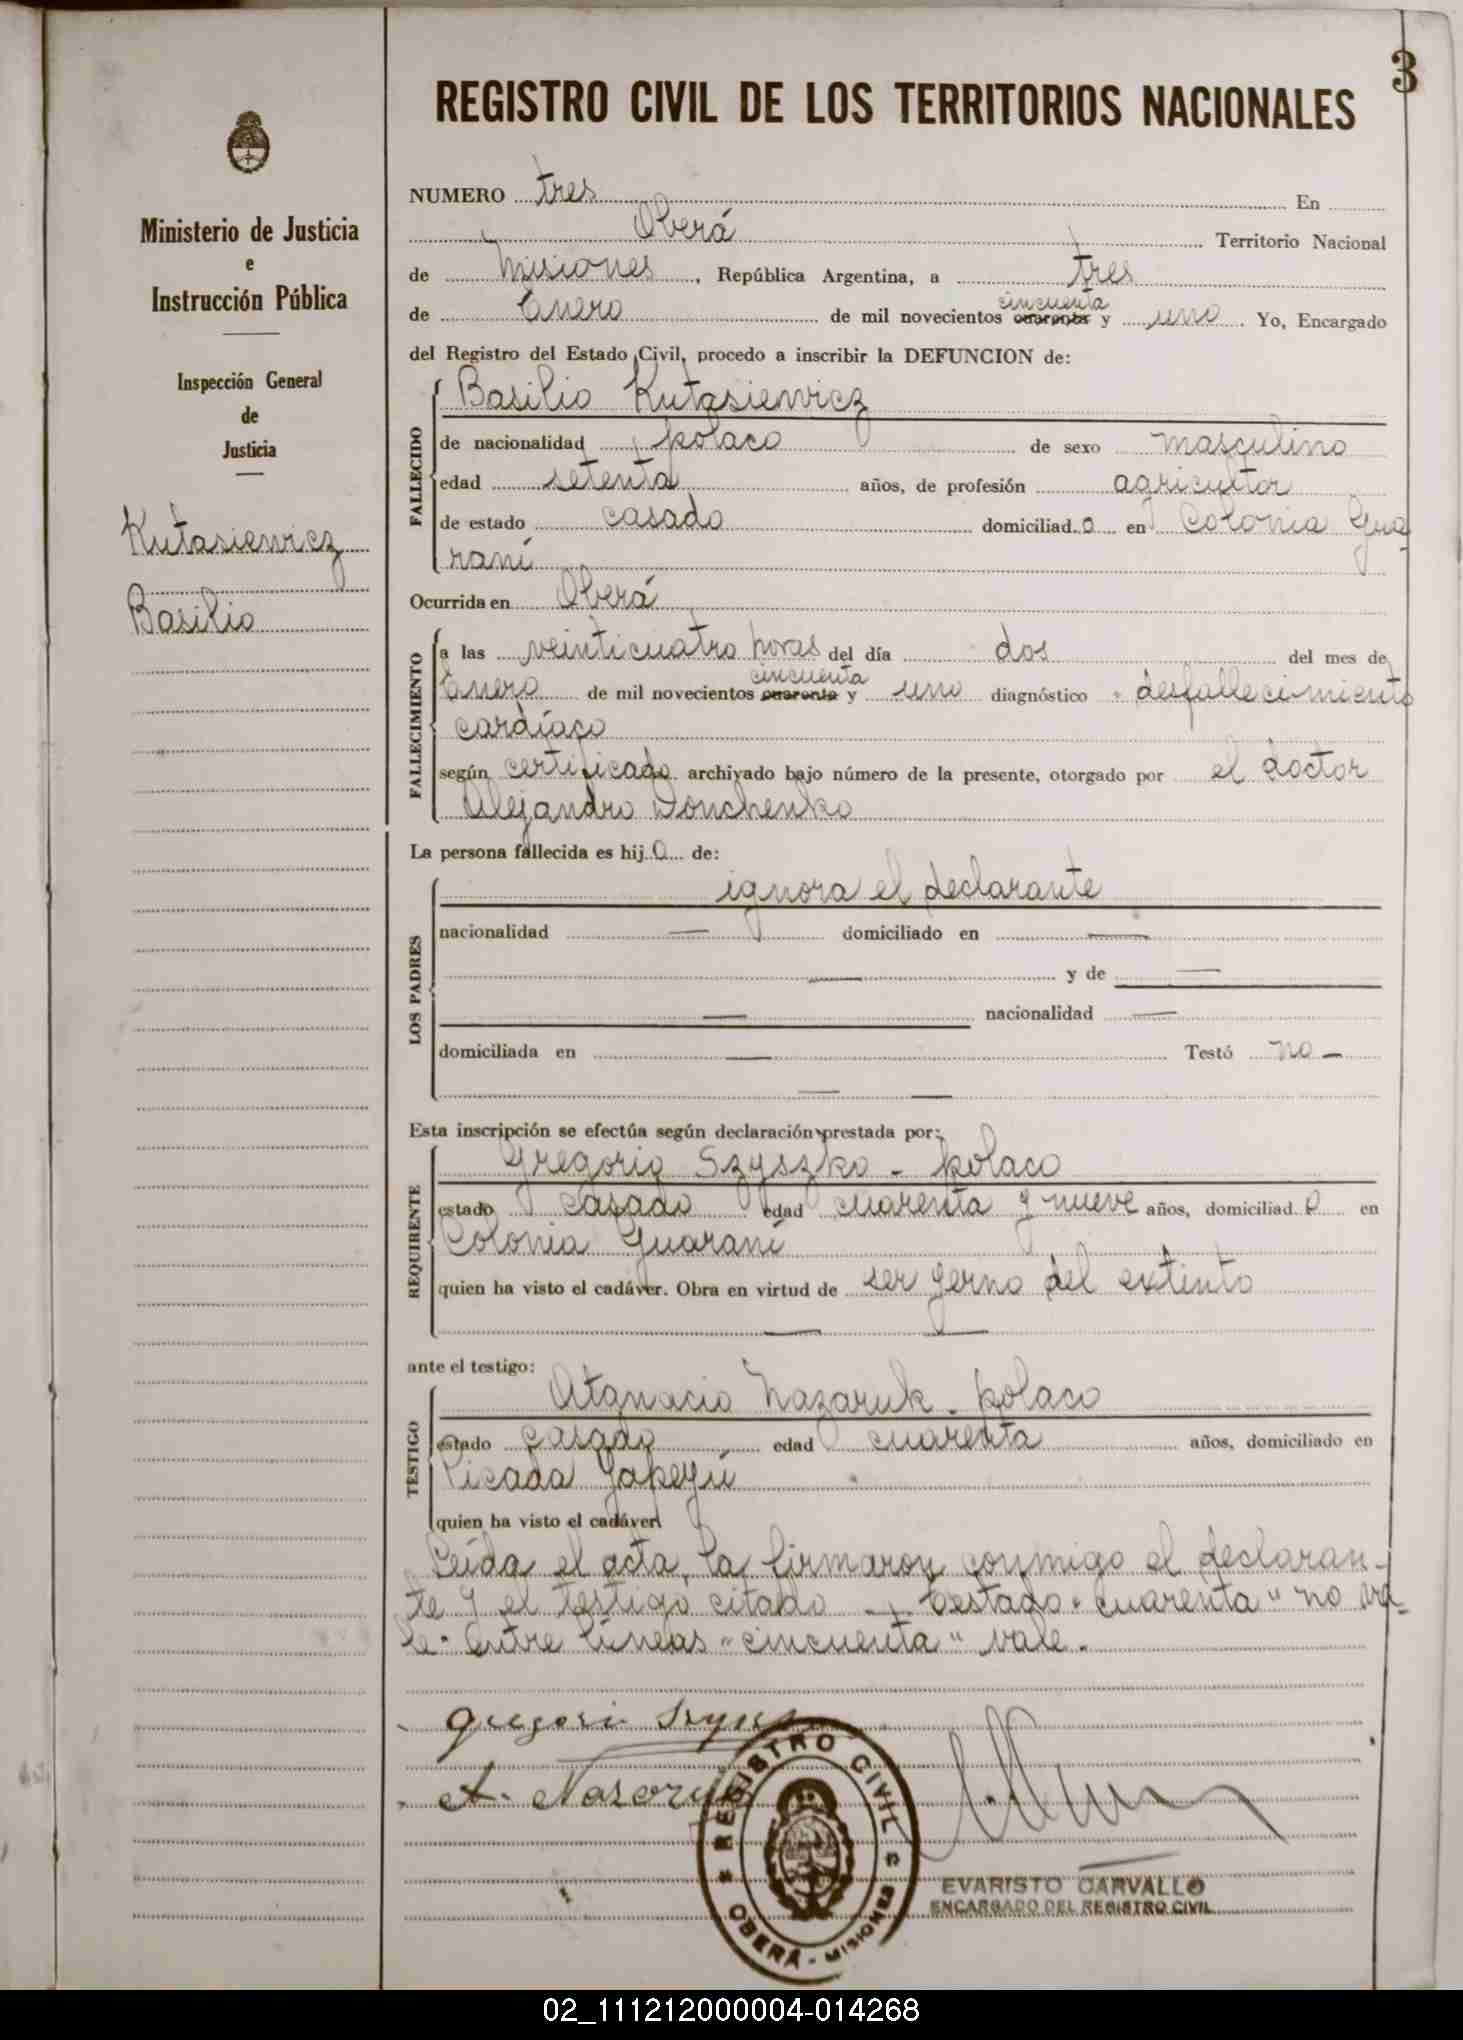 3
REGISTRO CIVIL DE LOS TERRITORIOS NACIONALES
Ministerio de Justicia
e
Instrucción Pública
Inspección General
de
Justicia
Kutasiewicz
Basilio
NUMERO tres En
Oberá Territorio Nacional
de Misiones, República Argentina, a tres
de Enero de mil novecientos cuarenta cincuenta y uno Yo, Encargado
del Registro del Estado Civil, procedo a inscribir la DEFUNCION de:
FALLECIDO
Basilio Kutasiewicz
de nacionalidad polaco de sexo masculino
edad setenta años, de profesión agricultor
de estado casado domiciliad o en Colonia Gua
raní
Ocurrida en Oberá
FALLECIMIENTO
a las veinticuatro horas del día dos del mes de
Enero de mil novecientos cuarenta cincuenta y uno diagnóstico "desfallecimiento
cardíaco
según certificado archivado bajo número de la presente, otorgado por el doctor
Alejandro Donchenko
La persona fallecida es hij o de:
LOS PADRES
ignora el declarante
nacionalidad — domiciliado en —
— y de —
— nacionalidad —
domiciliada en — Testó no —
— —
Esta inscripción se efectúa según declaración prestada por:
REQUIRENTE
Gregorio Szyszko - polaco
estado casado edad cuarenta y nueve años, domiciliad o en
Colonia Guaraní
quien ha visto el cadáver. Obra en virtud de ser yerno del extinto
— —
ante el testigo:
TESTIGO
Atanacio Nazaruk - polaco
estado casado edad cuarenta años, domiciliado en
Picada Yapeyú
quien ha visto el cadáver
Leída el acta, la firmaron conmigo el declaran-
te y el testigo citado —. Testado "cuarenta" no va-
le - Entre líneas "cincuenta" vale.
Gregori
A.
REGISTRO CIVIL
OBERÁ - MISIONES
EVARISTO CARVALLO
ENCARGADO DEL REGISTRO CIVIL
02_111212000004-014268